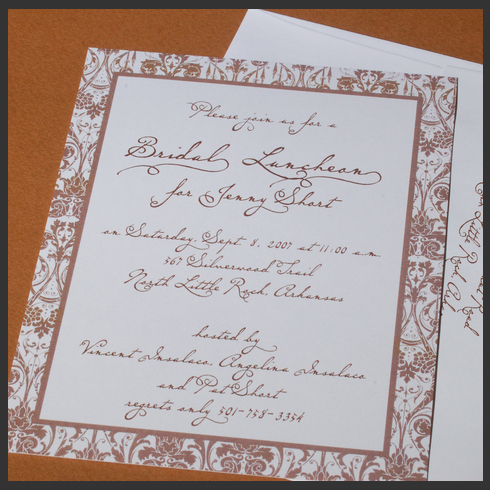 Please join us for a
Bridal Luncheon
for Jenny Short
on Saturday, Sept. 8, 2007 at 11:00 a.m.
567 Silverwood Trail
North Little Rock, Arkansas
hosted by
Vincent Insalaco, Angelina Insalaco
and Pat Short
regrets only 501-758-3354
Road
Little Rock